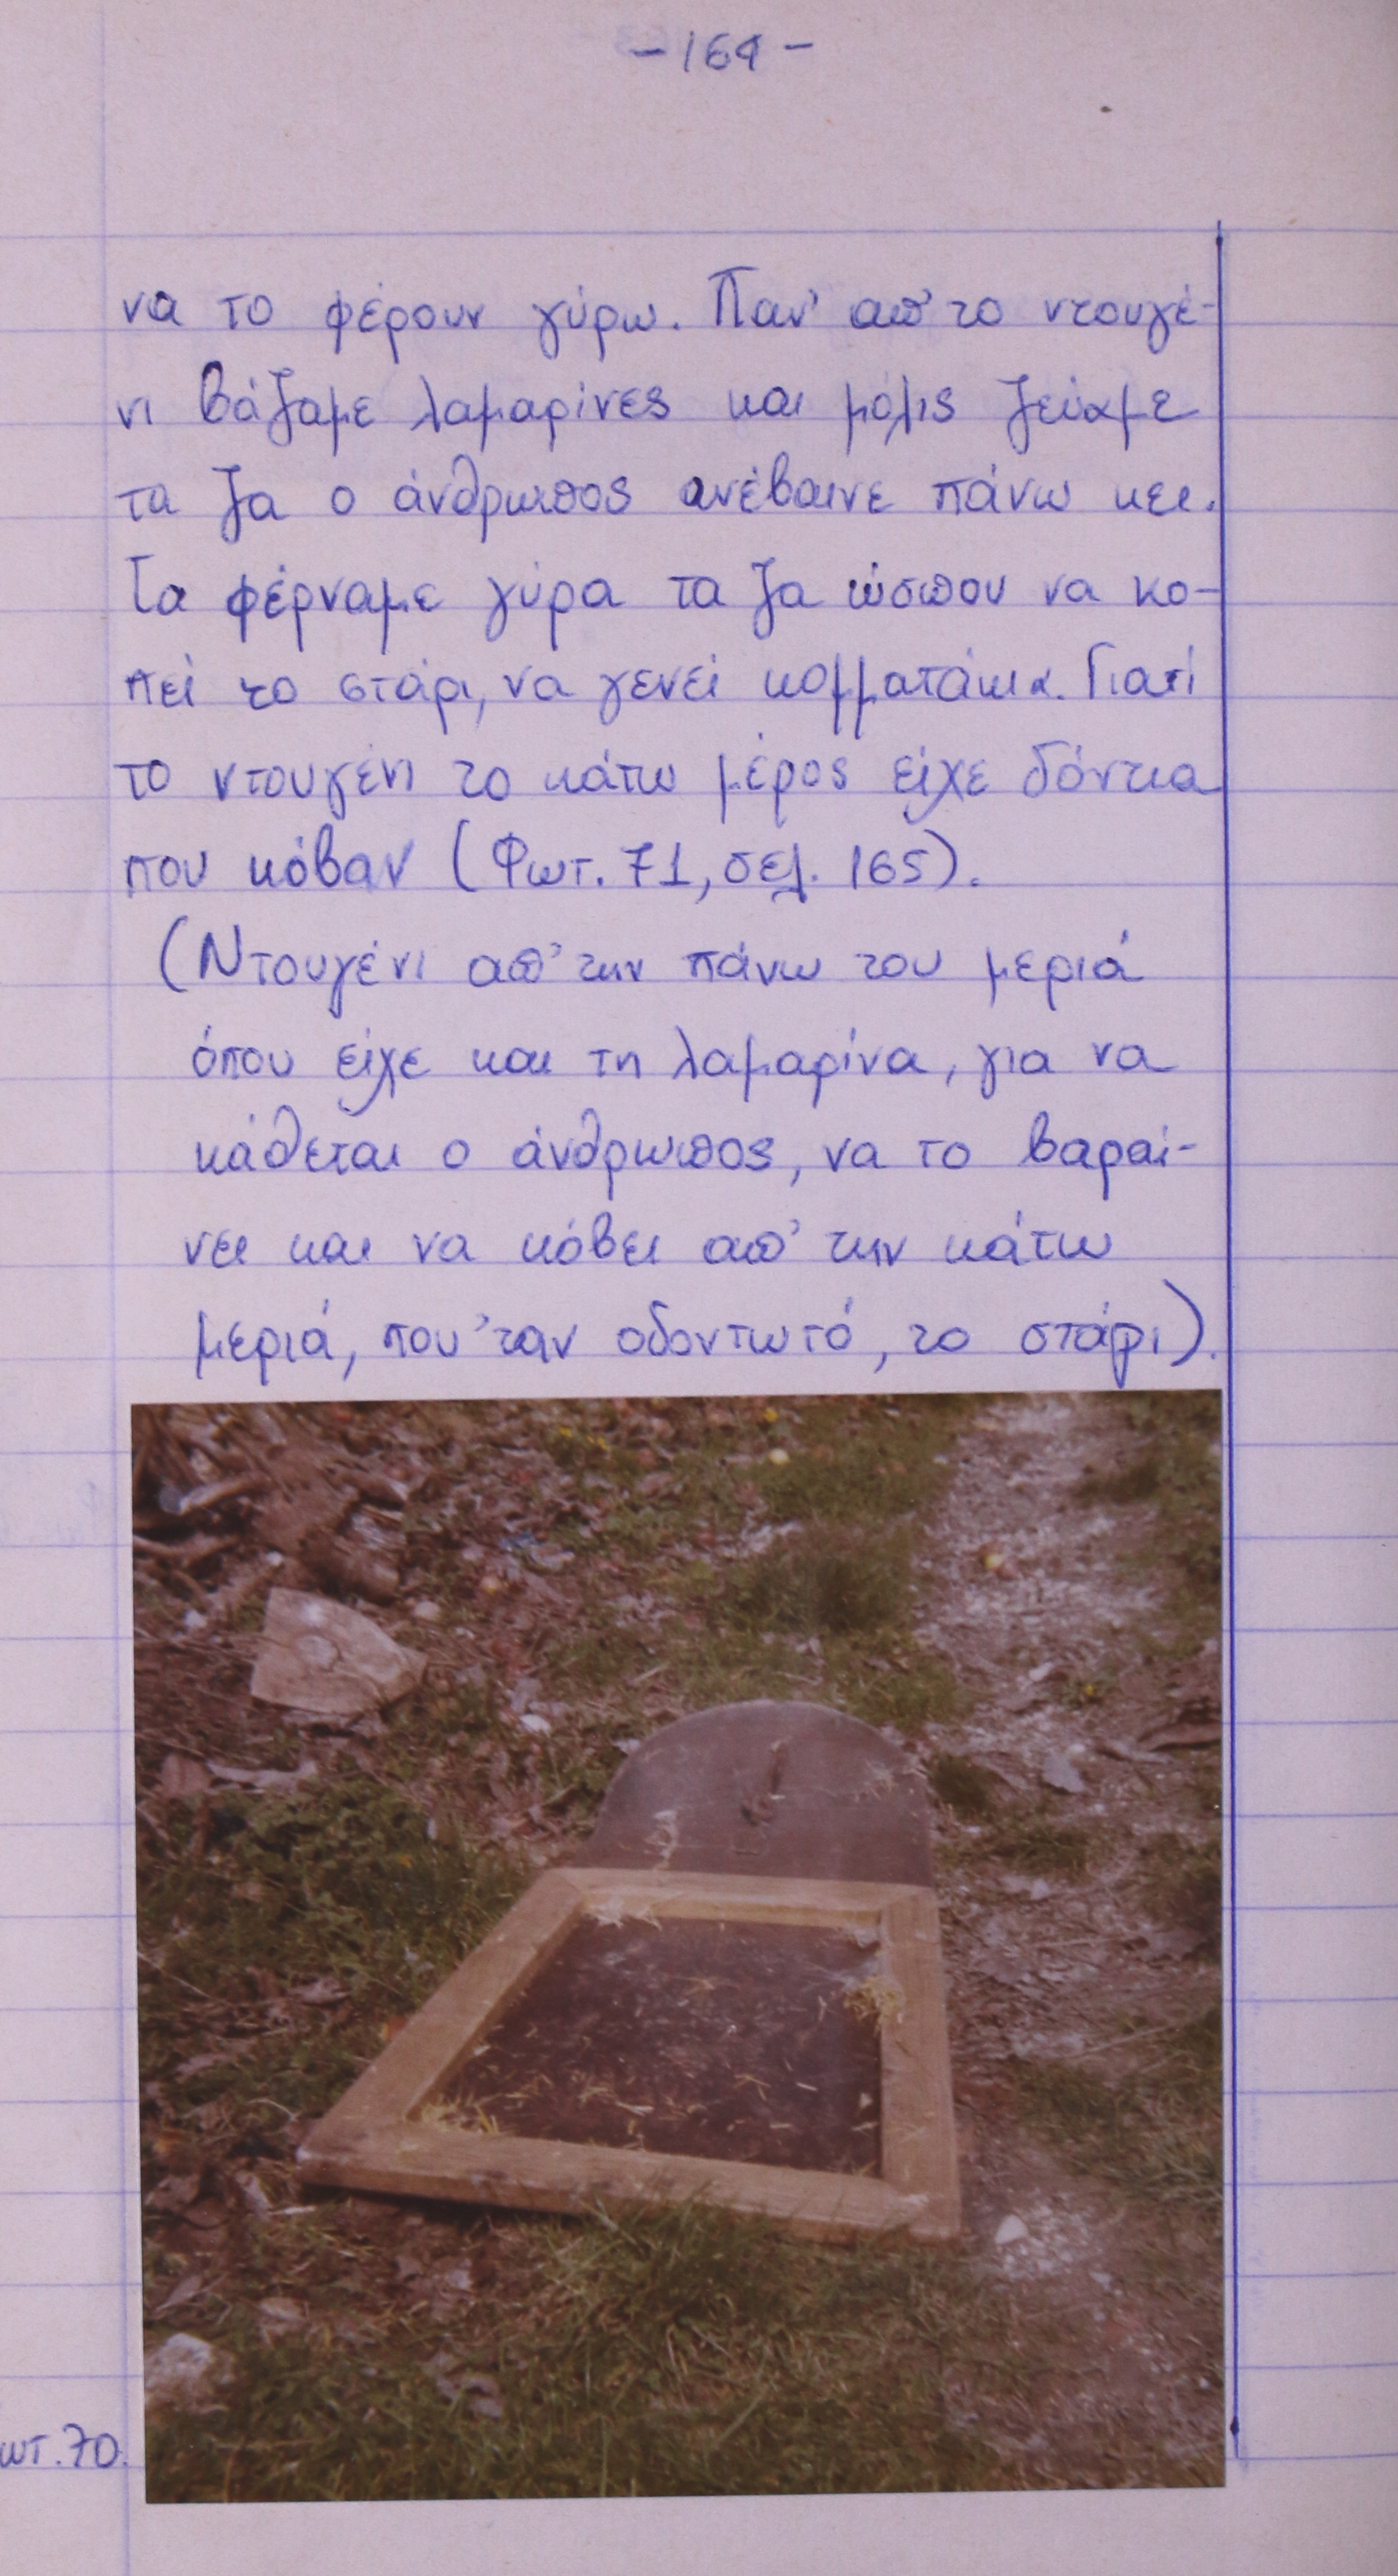 -164-
να το φέρουν γύρω. Παν' απ' το ντουγέ-
νι βάζαμε λαμαρίνες και μόλις ζεύαμε
τα ζα ο άνθρωπος ανέβαινε πάνω κει.
Τα φέρναμε γύρα τα ζα ώσπου να κο-
πεί το στάρι, να γενεί κομματάκια. Γιατί
το ντουγένι το κάτω μέρος είχε δόντια
που κόβαν (Φωτ. 71, σελ. 165).
(Ντουγένι απ' την πάνω του μεριά
όπου είχε και τη λαμαρίνα, για να
κάθεται ο άνθρωπος, να το βαραί-
νει και να κόβει απ' την κάτω
μεριά, που 'ταν οδοντωτό, το στάρι).
ωτ. 70.